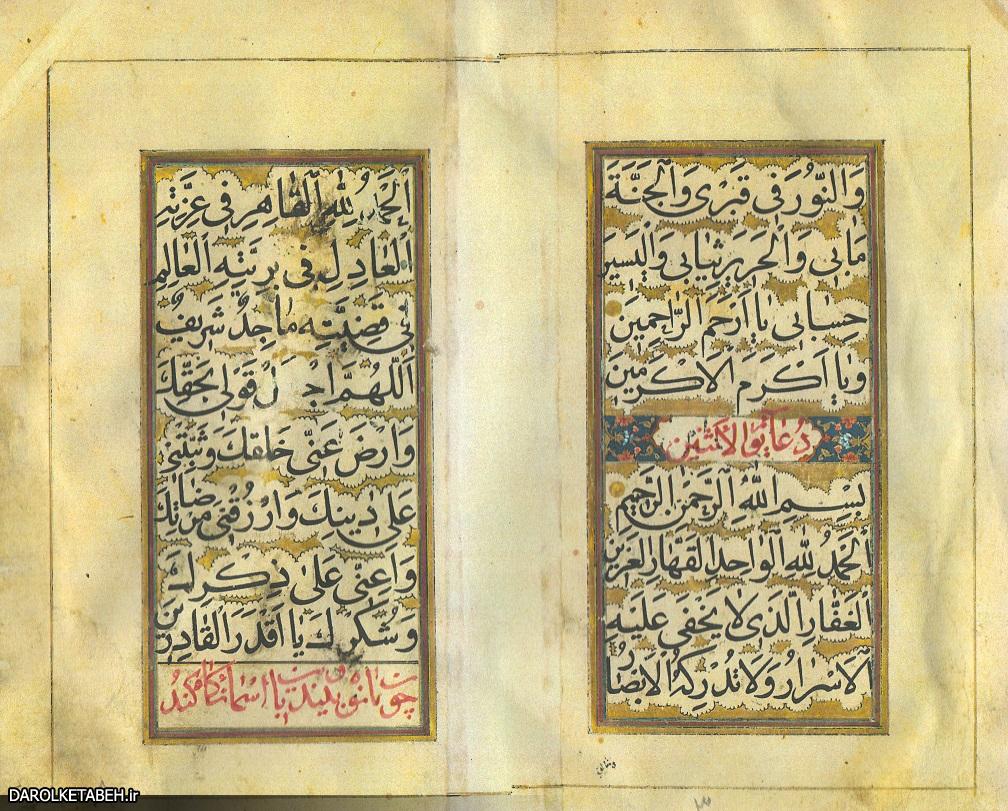 وَالنُّورَ فی قَبْری وَالْجَنَّةَ
مَابی وَالْحَریرَ ثِیابی وَالْیَسیرَ
حِسابی یا اَرْحَمَ الرّاحِمینَ
وَیا اَکْرَمَ الاَکْرَمینَ
دُعای یَوْمَ الاَثْنَین
بِسْمِ اللّهِ الرَّحْمنِ الرَّحیمِ
اَلْحَمْدُ لِلّهِ الْواحِدِ الْقَهّارِ الْعَزیزِ
الْغَفّارِ الَّذی لا یَخْفی عَلَیْهِ
الاَسْرارُ وَلا تُدْرِکُهُ الاَبْصارُ
اَلْحَمْدُ لِلّهِ الْقاهِرِ فی عِزَّتِهِ
الْعادِلِ فی بَرِیَّتِهِ الْعالِمِ
فی قَضِیَّتِهِ ماجِدٌ شَریفٌ
اَللّهُمَّ قَوْلی بِحَقِّکَ
وَارْضَ عَنّی خَلْقَکَ وَثَبِّتْنی
عَلی دینِکَ وَارْزُقْنی مِنْ رِضاتِکَ
وَاَعِنّی عَلی ذِکْرِکَ
وَشُکْرِکَ یا اَقْدَرَ الْقادِرینَ
چون ماه نو بیند با آسمان نگاه کند
DAROLKETABEH.ir